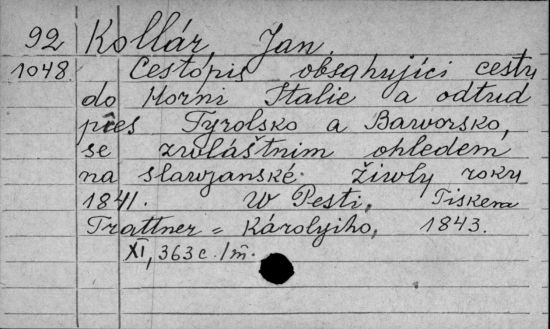 92 Kollár, Jan.
1048. Cestópis obsahujíci cestu
do Horní Italie a odtud
přes Tyrolsko a Baworsko,
se zwláštním ohledem
na slawjanské žiwly roku
1841. W Pesti, Tiskem
Trattner = Károlyiho, 1843.
XI, 363 c. /m̄.